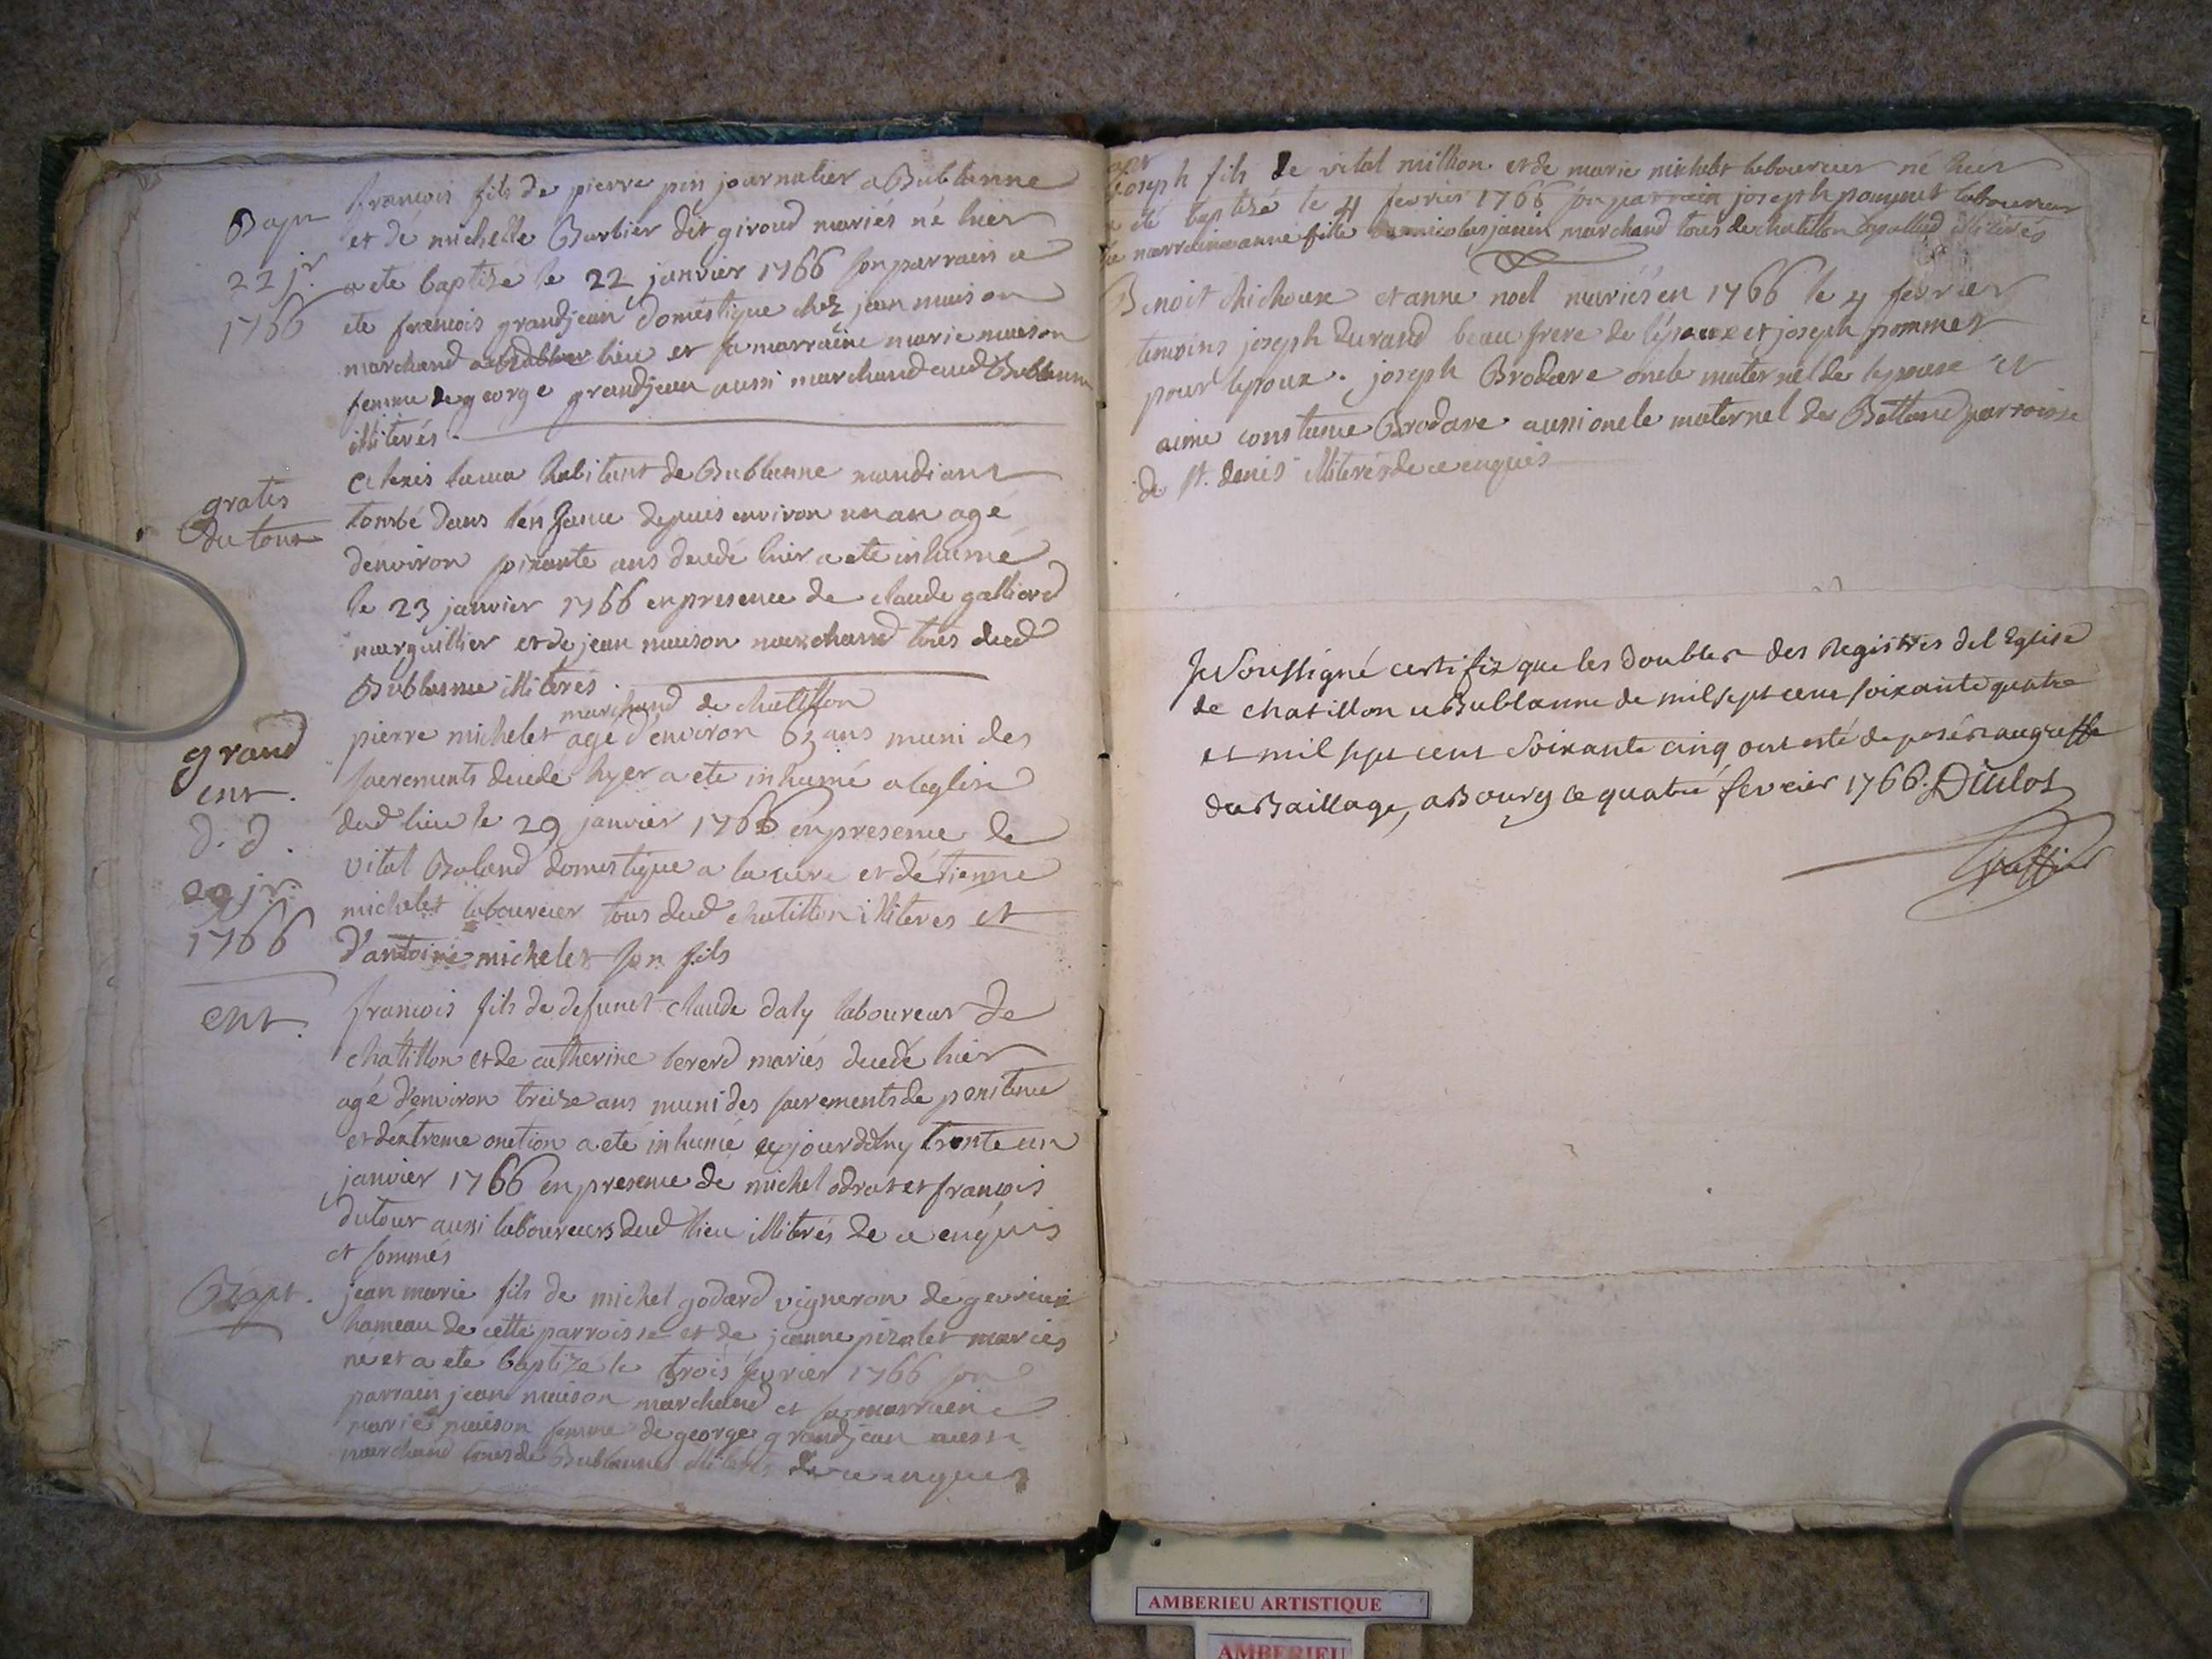 Bapt
22 jr.
1766
francois fils de pierre pin journalier a Bublanne
et de michelle Barbier dit giroud mariés né hier
a ete baptisé le 22 janvier 1766 son parrain a
ete francois grandjean doméstique chez jean maison
marchand lieu et sa marraine marie maison
femme de george grandjean aussi marchand dud Bublanne
illiterés.
gratis
du tout
habitant de Bublanne mandiant
tombé dans l'énfance depuis environ un an agé
d'énviron soixante ans decedé hier a ete inhumé
le 23 janvier 1766 en presence de claude galliard
marguillier et de jean maison marchand tous dud
Bublanne illiterés.
grand
ent.
d. d.
29 jr.
1766
marchand de chatillon
pierre michelet agé d'environ 63 ans muni des
sacrements decedé hyer a ete inhumé a leglise
dud lieu le 29 janvier 1766 en presence de
vital Boland domestique a la cure et détienne
michelet laboureur tous dud chatillon illiterés et
d'antoine michelet son fils
ent.
francois fils de defunct claude daly laboureur de
chatillon et de catherine bererd mariés decedé hier
agé d'environ treize ans muni des sacrements de penitence
et déxtreme onction a eté inhumé trente un
janvier 1766 en presence de michel odrat et francois
dutour aussi laboureurs dud lieu illiterés de ce enquis
et sommés
Bapt.
jean marie fils de michel godard vigneron de gevrieux
hameau de cette parroisse et de jeanne pizolet mariés
né et a eté baptizé le trois fevrier 1766 son
parrain jean maison marchand et sa marraine
marie maison femme de george grandjean aussi
marchand tous de Bublanne illiterés de ce enquis
bapt
joseph fils de vital million et de marie michelet laboureur né hier
a eté baptisé le 4 fevrier 1766 son parrain joseph pommet laboureur
sa marraine anne fille de nicolas janin marchand tous de chatillon illiterés
Benoit chichoux et anne noel mariés en 1766 le 4 fevrier
temoins joseph durand beau frere de l'époux et joseph pommet
pour lepoux. joseph Brodare oncle maternel de lepouse et
aimé constance Brodare aussi oncle maternel de Bettand parroisse
de St. denis illiterés de ce enquis
Je Soussigné certifie que les doubles des Registres de l'Eglise
de chatillon et Bublanne de mil sept cent soixante quatre
et mil sept cent Soixante cinq ont esté deposés au greffe
du Baillage, a Bourg le quatre fevrier 1766.
Greffier
AMBERIEU ARTISTIQUE
AMBERIEU